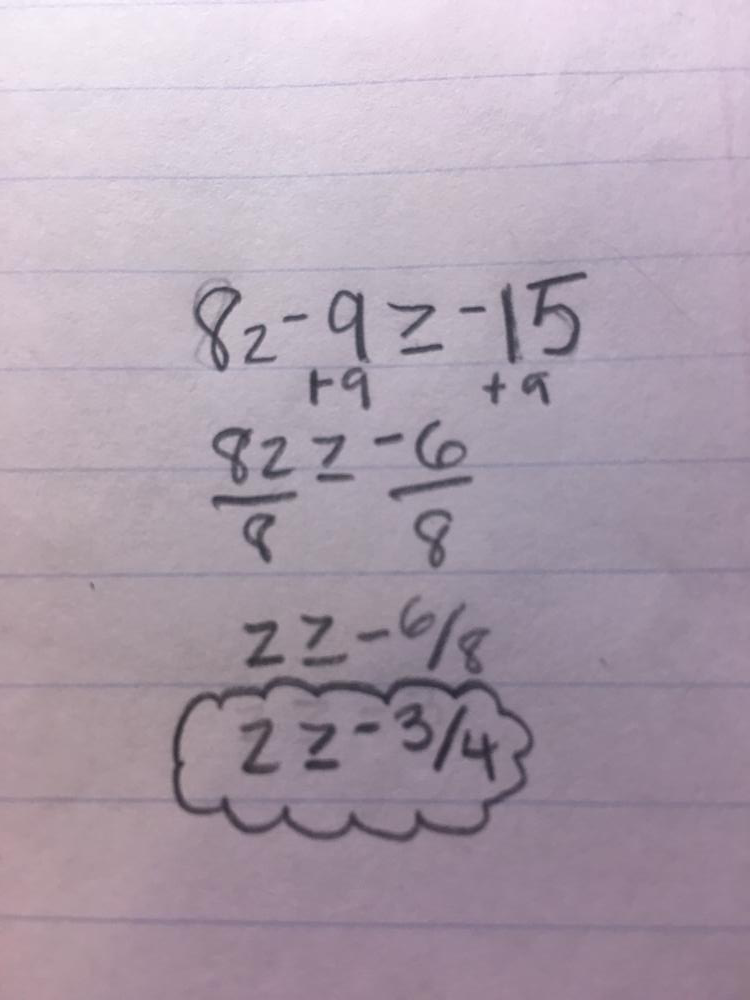 8z - 9 ≥ -15
+9 +9
8z ≥ -6
8 8
z ≥ -6/8
z ≥ -3/4